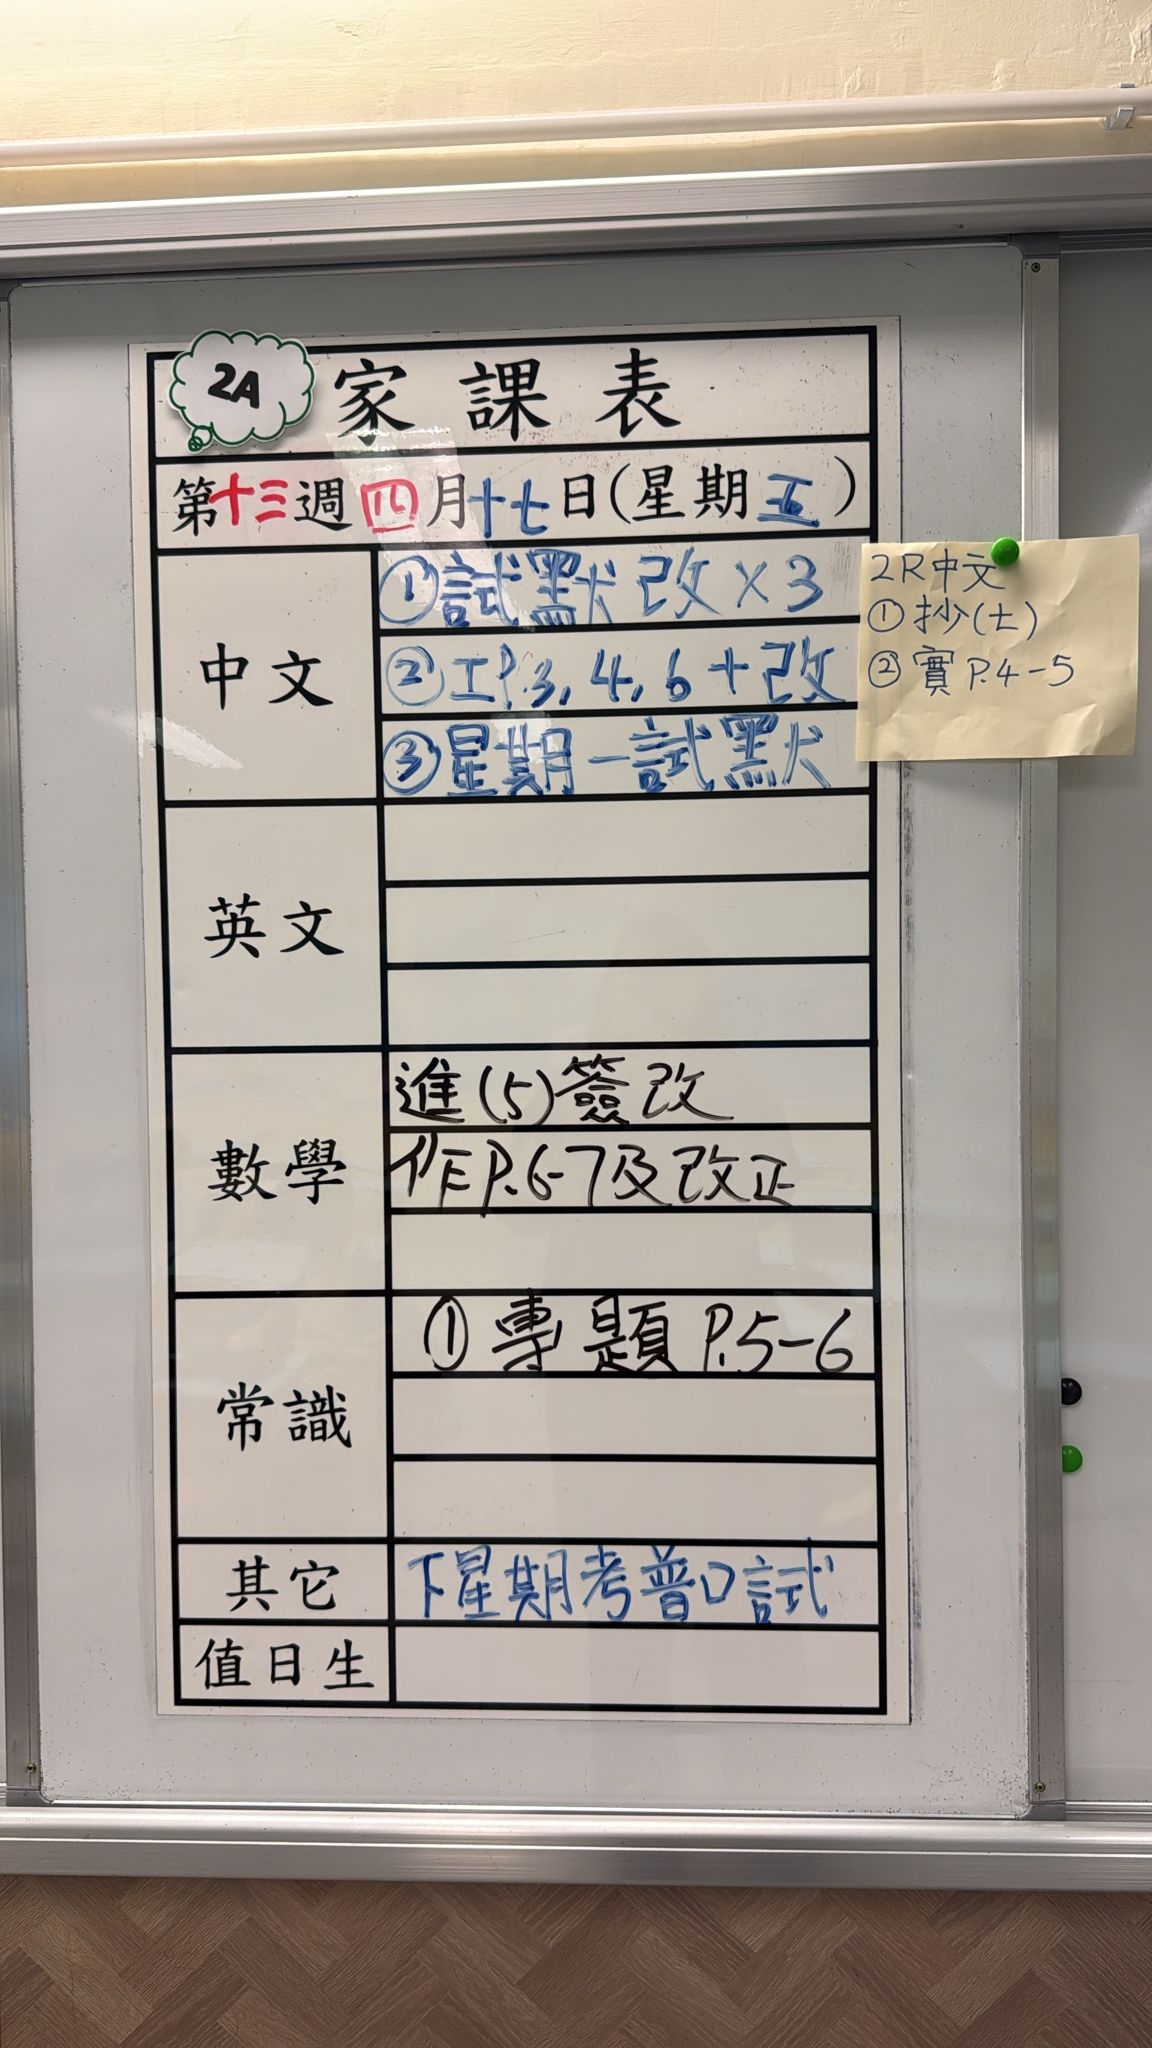 2A
家課表
第十三週四月十七日(星期五)
中文
①試默改×3
②工P.3,4,6+改
③星期一試默
2R中文
①抄(七)
②實P.4-5
英文
數學
進(5)簽改
作P.6-7及改正
常識
①專題P.5-6
其它
下星期考普口試
值日生